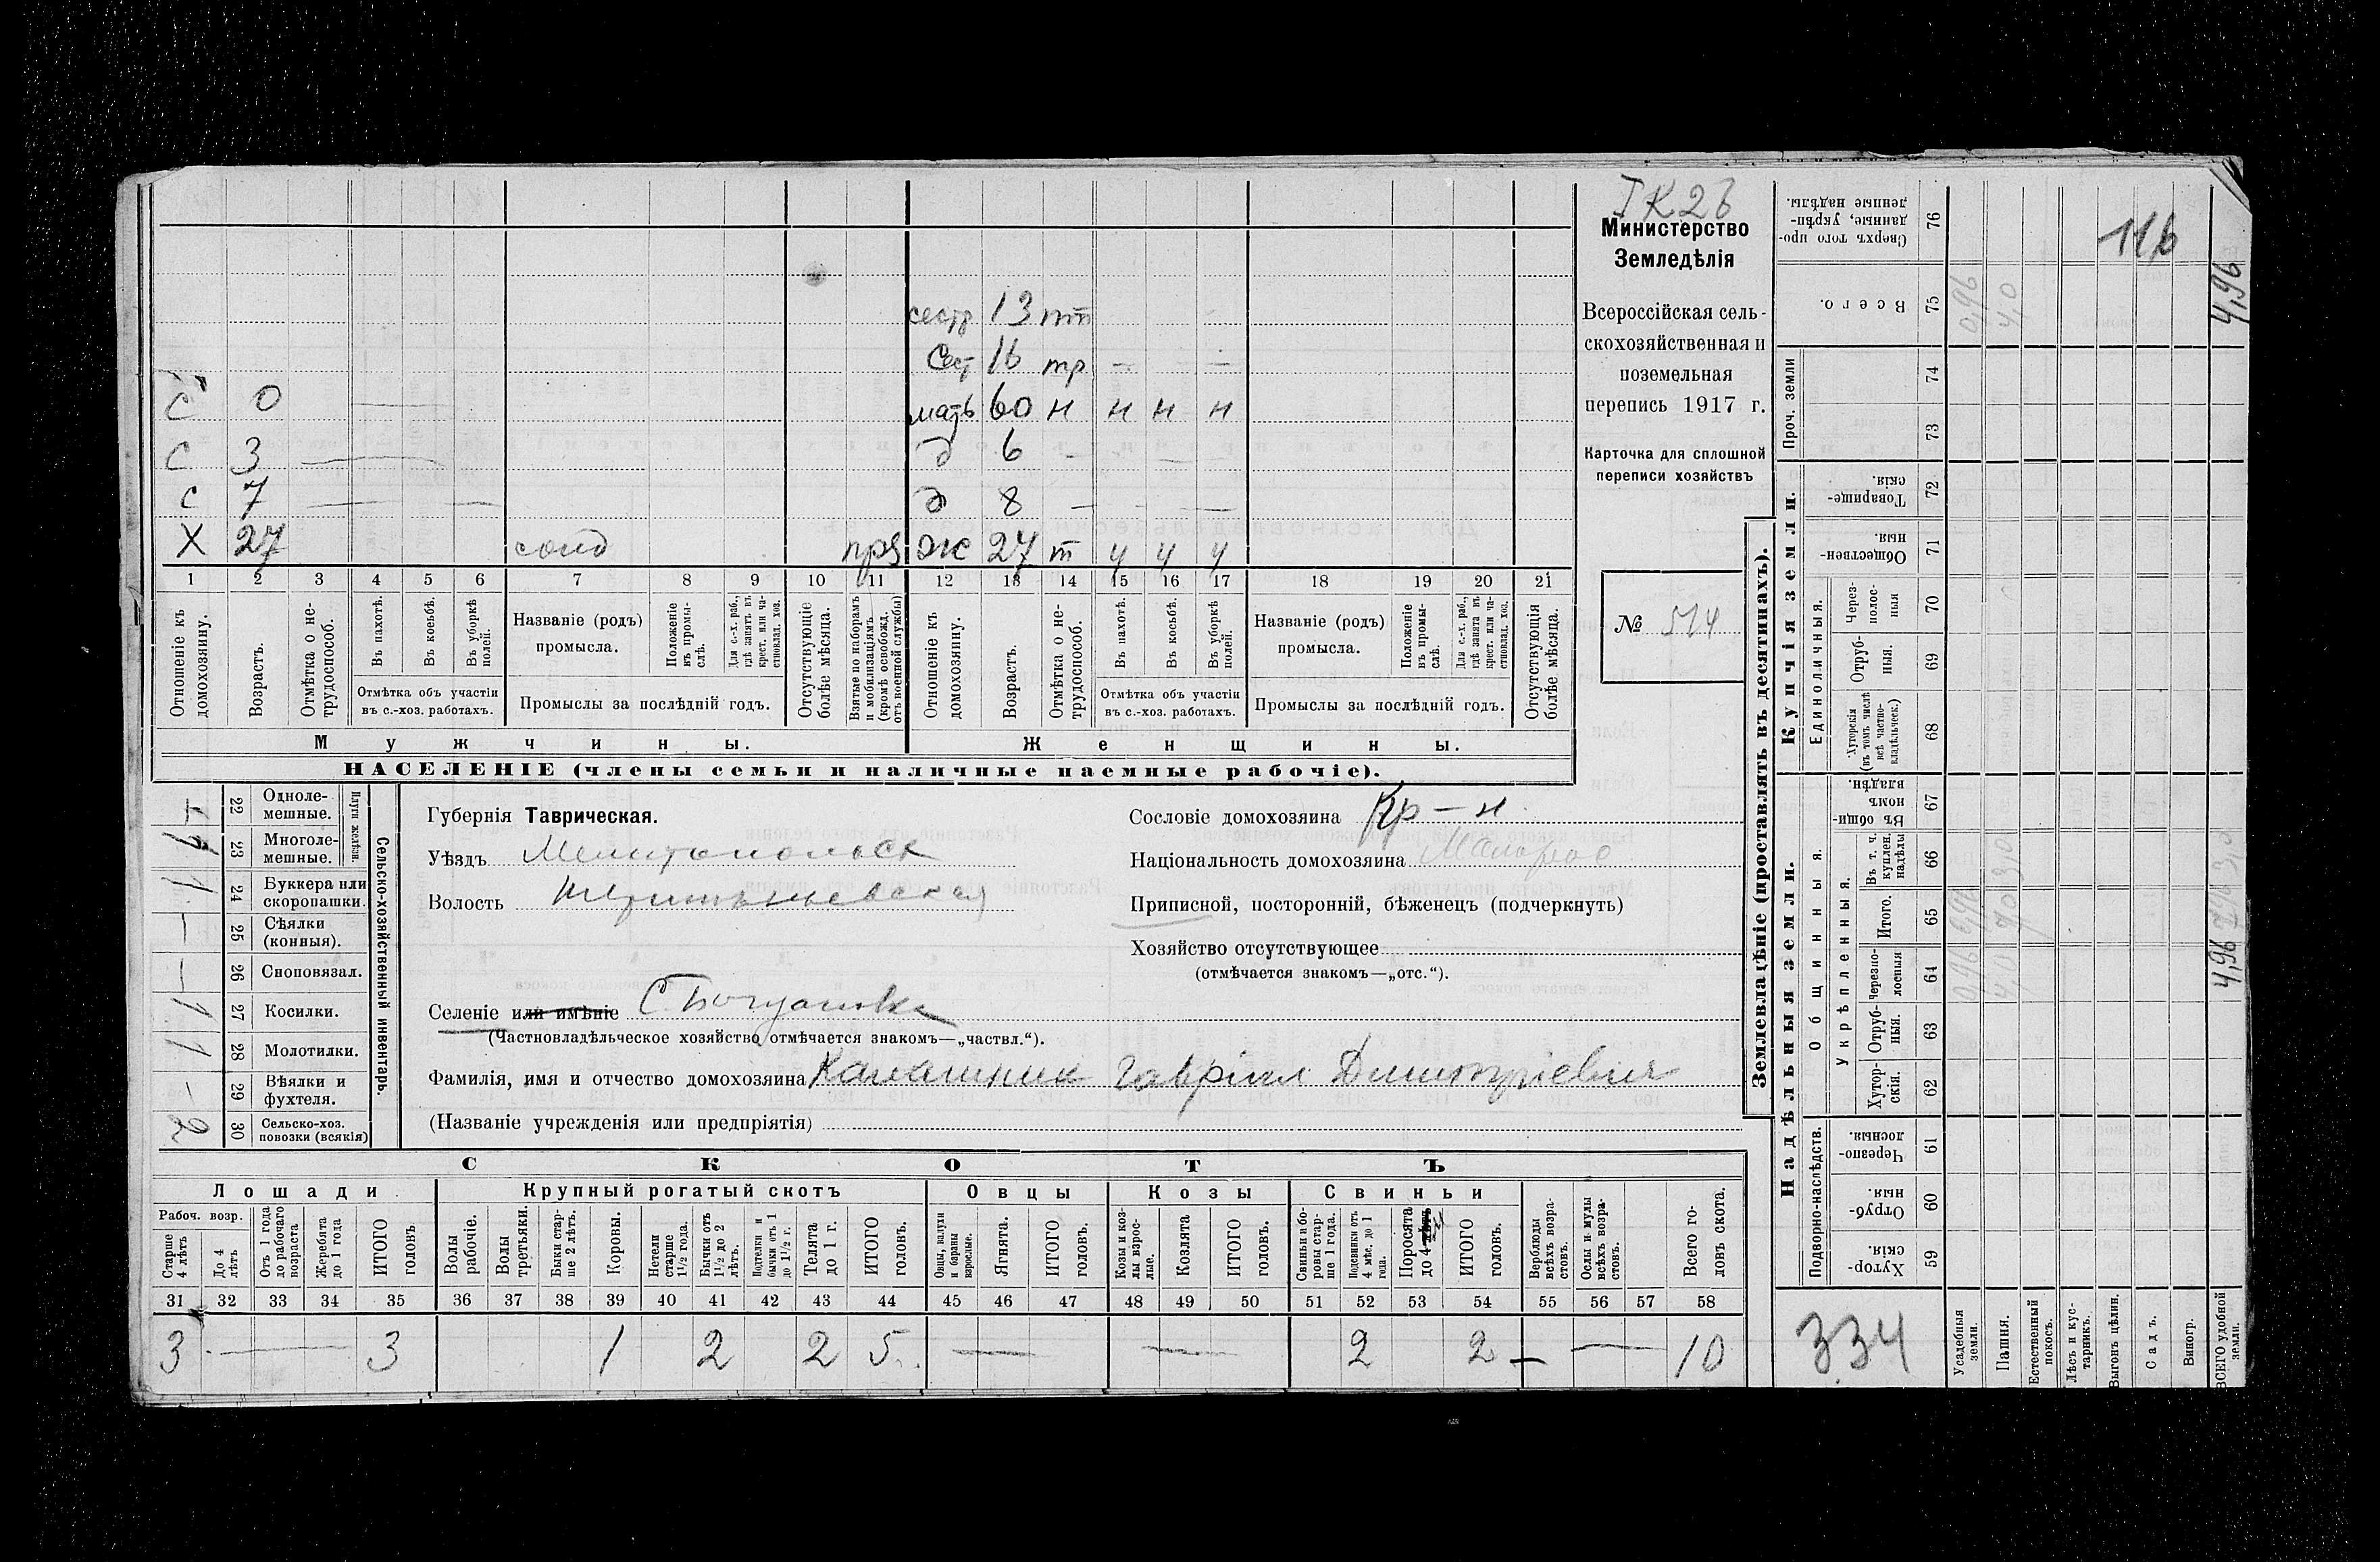 сестр 13 нт
Сест 16 тр — —
С 0 — мать 60 н н н н
С 3 — д 6 - —
С 7 — — д 8 — - —
Х 27 солд прз ж 27 т ч ч ч
1 2 3 4 5 6 7 8 9 10 11 12 13 14 15 16 17 18 19 20 21
Отношеніе къ домохозяину.
Возрастъ.
Отмѣтка о не-
трудоспособ.
Въ пахотѣ.
Въ косьбѣ.
Въ уборкѣ полей.
Отмѣтка объ участіи
въ с.-хоз. работахъ.
Названіе (родъ)
промысла.
Положеніе въ промы-
слѣ.
Для с.-х. раб.,
гдѣ занятъ въ
крест. или ча-
стновлад. хоз.
Промыслы за послѣдній годъ.
Отсутствующіе
болѣе мѣсяца.
Взятые по наборамъ
и мобилизаціямъ
(кромѣ освобожд.
отъ военной службы)
Отношеніе къ
домохозяину.
Возрастъ.
Отмѣтка о не-
трудоспособ.
Въ пахотѣ.
Въ косьбѣ.
Въ уборкѣ
полей.
Отмѣтка объ участіи
въ с.-хоз. работахъ.
Названіе (родъ)
промысла.
Положеніе
въ промы-
слѣ.
Для с.-х. раб.,
гдѣ занята въ
крест. или ча-
стновлад. хоз.
Промыслы за послѣдній годъ.
Отсутствующія
болѣе мѣсяца.
Мужчины.
Женщины.
НАСЕЛЕНІЕ (члены семьи и наличные наемные рабочіе).
Министерство
Земледѣлія
Всероссійская сель-
скохозяйственная и
поземельная
перепись 1917 г.
Карточка для сплошной
переписи хозяйствъ
№ 514
Плуги желѣзн.
22 Однолемешные. —
23 Многолемешные. 1
24 Буккера или скоропашки. 1
25 Сѣялки (конныя). —
26 Сноповязал. —
27 Косилки. 1
28 Молотилки. 1
29 Вѣялки и фухтеля. -
30 Сельско-хоз. повозки (всякія) 2
Сельско-хозяйственный инвентарь.
Губернія Таврическая.
Уѣздъ Мелитопольск
Волость
Селеніе или имѣніе С. Богдановка
(Частновладѣльческое хозяйство отмѣчается знакомъ—„частвл.“).
Сословіе домохозяина Кр-н
Національность домохозяина Малорос
Приписной, посторонній, бѣженецъ (подчеркнуть)
Хозяйство отсутствующее
(отмѣчается знакомъ—„отс.“).
Фамилія, имя и отчество домохозяина Калашник Гавріил Димитріевич
(Названіе учрежденія или предпріятія)
СКОТЪ
Лошади
Крупный рогатый скотъ
Овцы
Козы
Свиньи
Рабоч. возр.
Старше 4 лѣтъ
До 4 лѣтъ
Отъ 1 года до рабочаго возраста
Жеребята до 1 года
ИТОГО головъ
Волы рабочіе.
Волы третьяки.
Быки старше 2 лѣтъ.
Коровы.
Нетели старше 1½ года.
Бычки отъ 1½ до 2 лѣтъ.
Подтелки и бычки отъ 1 до 1½ г.
Телята до 1 г.
ИТОГО головъ.
Овцы, валухи и бараны взрослые.
Ягнята.
ИТОГО головъ.
Козы и козлы взрослые.
Козлята
ИТОГО головъ.
Свиньи и боровы старше 1 года.
Подсвинки отъ 4 мѣс. до 1 года.
Поросята до 4 лѣтъ
ИТОГО головъ.
Верблюды всѣхъ возрастовъ.
Ослы и мулы всѣхъ возрастовъ.
Всего головъ скота.
31 32 33 34 35 36 37 38 39 40 41 42 43 44 45 46 47 48 49 50 51 52 53 54 55 56 57 58
3 — 3 1 2 2 5 — — 2 2 — — 10
Землевладѣніе (проставлять въ десятинахъ).
Купчія земли.
Надѣльныя земли.
Сверхъ того проданные, укрѣпленные надѣлы. 76 116
Всего. 75 0,96 4,0 4,96
Проч. земли
74
73
Товарищескія. 72
Общественныя. 71
Единоличныя.
Черезполосныя 70
Отрубныя. 69
Хуторскія (въ томъ числѣ всѣ частновладѣльческ.) 68
Общинныя.
Въ общинномъ владѣн. 67
Укрѣпленныя.
Въ т. ч. куплен. надѣлы 66 3,0
Итого. 65
Черезполосныя 64 0,96 4,0 4,96
Отрубныя. 63
Хуторскія. 62
Подворно-наслѣдств.
Черезполосныя. 61
Отрубныя. 60
Хуторскія. 59
334
Усадебныя земли.
Пашня.
Естественный покосъ.
Лѣсъ и кустарникъ.
Выгонъ цѣлин.
Садъ.
Виногр.
ВСЕГО удобной земли.